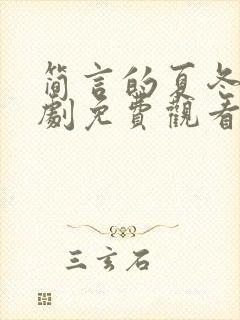 简言的夏冬
劇免費觀看
三玄石